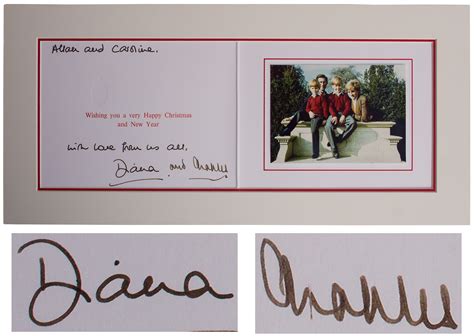 Allan and Caroline.
Wishing you a very Happy Christmas
and New Year
with love from us all,
Diana and Charles
Diana
Charles